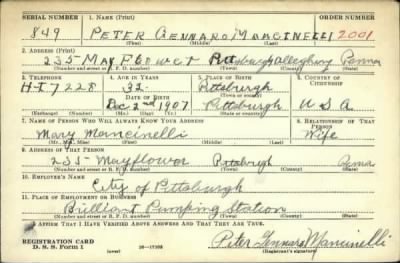 SERIAL NUMBER 1. NAME (Print) ORDER NUMBER
849 PETER GENNARO MANCINELLI 2001
(First) (Middle) (Last)
2. ADDRESS (Print)
235 MAYFLOWER Pittsburgh Allegheny Penna
(Number and street or R. F. D. number) (Town) (County) (State)
3. TELEPHONE 4. AGE IN YEARS 5. PLACE OF BIRTH 6. COUNTRY OF CITIZENSHIP
HI 7228 32 Pittsburgh
DATE OF BIRTH (Town or county)
Dec 2nd 1907 Pittsburgh U S A
(Exchange) (Number) (Mo.) (Day) (Yr.) (State or country)
7. NAME OF PERSON WHO WILL ALWAYS KNOW YOUR ADDRESS 8. RELATIONSHIP OF THAT PERSON
Mary Mancinelli Wife
(Mr., Mrs., Miss) (First) (Middle) (Last)
9. ADDRESS OF THAT PERSON
235- Mayflower Pittsburgh Penna
(Number and street or R. F. D. number) (Town) (County) (State)
10. EMPLOYER'S NAME
City of Pittsburgh
11. PLACE OF EMPLOYMENT OR BUSINESS
Brilliant Pumping Station
(Number and street or R. F. D. number) (Town) (County) (State)
I AFFIRM THAT I HAVE VERIFIED ABOVE ANSWERS AND THAT THEY ARE TRUE.
REGISTRATION CARD
D. S. S. Form 1 (over) 16—17105
Peter Gennaro Mancinelli
(Registrant's signature)